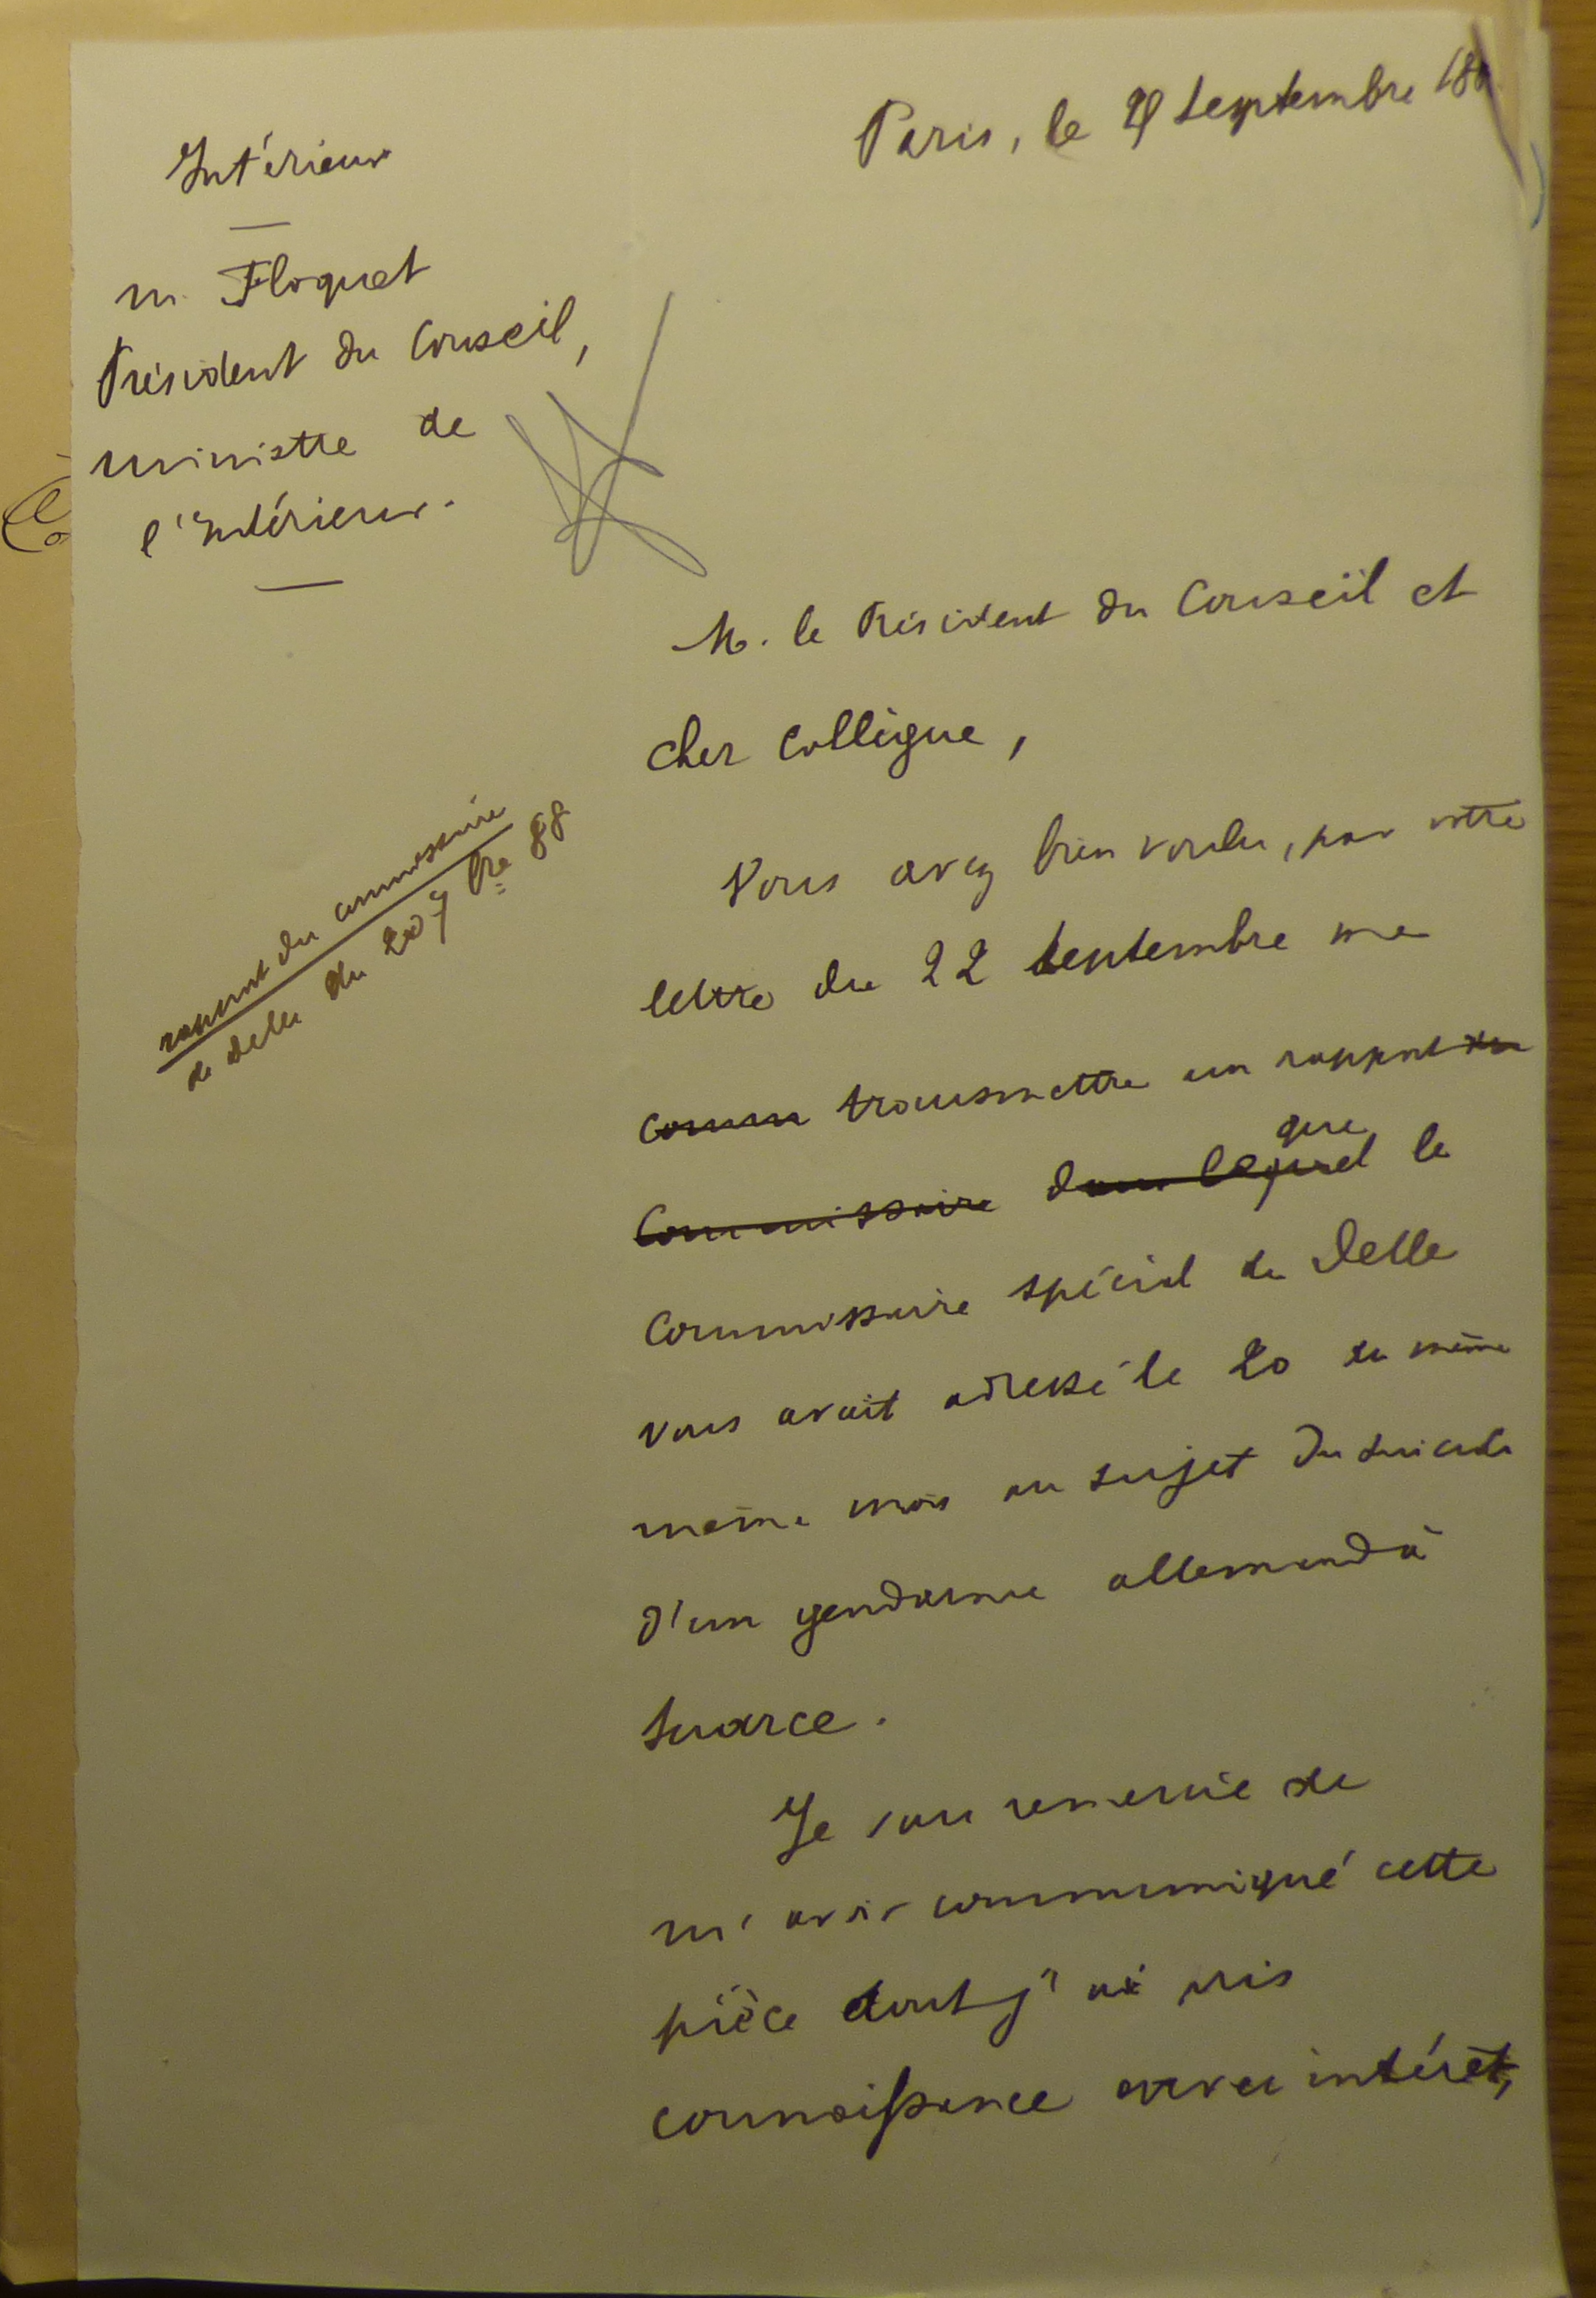 Paris, le 29 Septembre 188
Intérieur
M. Floquet
Président du Conseil,
ministre de
l'Intérieur.
M. le Président du Conseil et
cher Collègue,
rapport du commissaire
de Delle du 20 7bre 88
Vous avez bien voulu, par votre
lettre du 22 Septembre me
comm transmettre un rapport du
que
Commissaire dans lequel le
Commissaire spécial de Delle
vous avait adressé le 20 du même
même mois au sujet du suicide
d'un gendarme allemand à
Suarce.
Je vous remercie de
m'avoir communiqué cette
pièce dont j'ai pris
connaissance avec intérêt,